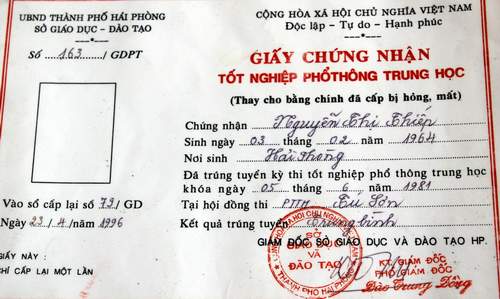 UBND THÀNH PHỐ HẢI PHÒNG
SỞ GIÁO DỤC - ĐÀO TẠO
Số 163 / GDPT
Vào sổ cấp lại số 73 / GD
Ngày 23 / 4 / năm 1996
GIẤY NÀY :
CHỈ CẤP LẠI MỘT LẦN
CỘNG HÒA XÃ HỘI CHỦ NGHĨA VIỆT NAM
Độc lập - Tự do - Hạnh phúc
GIẤY CHỨNG NHẬN
TỐT NGHIỆP PHỔ THÔNG TRUNG HỌC
(Thay cho bằng chính đã cấp bị hỏng, mất)
Chứng nhận Nguyễn Thị Thiếp
Sinh ngày 03 tháng 02 năm 1964
Nơi sinh Hải Phòng
Đã trúng tuyển kỳ thi tốt nghiệp phổ thông trung học
khóa ngày 05 tháng 6 năm 1981
Tại hội đồng thi PTTH
Kết quả trúng tuyển Trung bình
GIÁM ĐỐC SỞ GIÁO DỤC VÀ ĐÀO TẠO HP.
KT. GIÁM ĐỐC
PHÓ GIÁM ĐỐC
SỞ
GIÁO DỤC
VÀ
ĐÀO TẠO
THÀNH PHỐ HẢI PHÒNG
Đào Trung Đồng